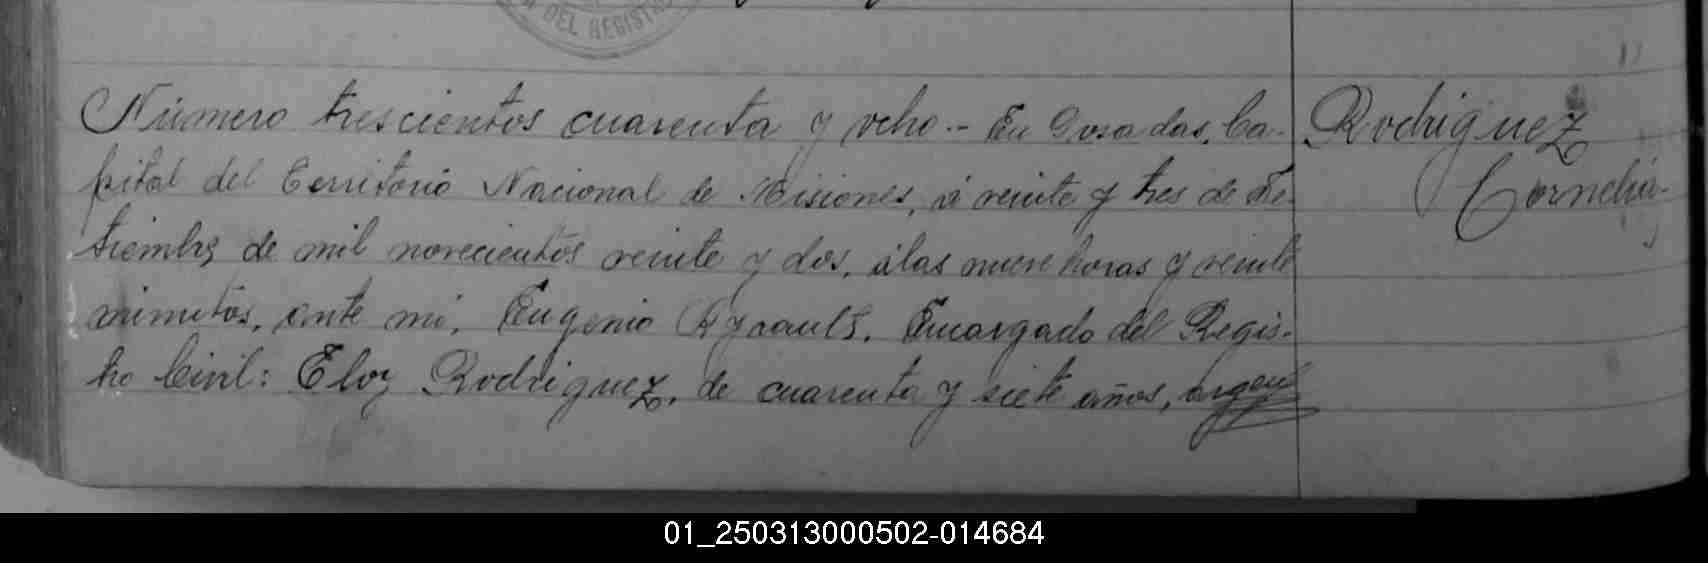 DEL REGISTR
Número trescientos cuarenta y ocho.- En Posadas, Ca-
pital del Territorio Nacional de Misiones, á veinte y tres de Se-
tiembre de mil novecientos veinte y dos, á las nueve horas y veinte
minutos, ante mi, Eugenio Encargado del Regis-
tro Civil: Eloy Rodriguez, de cuarenta y siete años, argen
Rodriguez
Cornelia
01_250313000502-014684